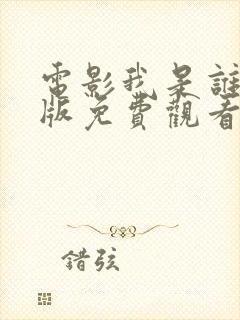 電影我是誰
版免費觀看
錯弦